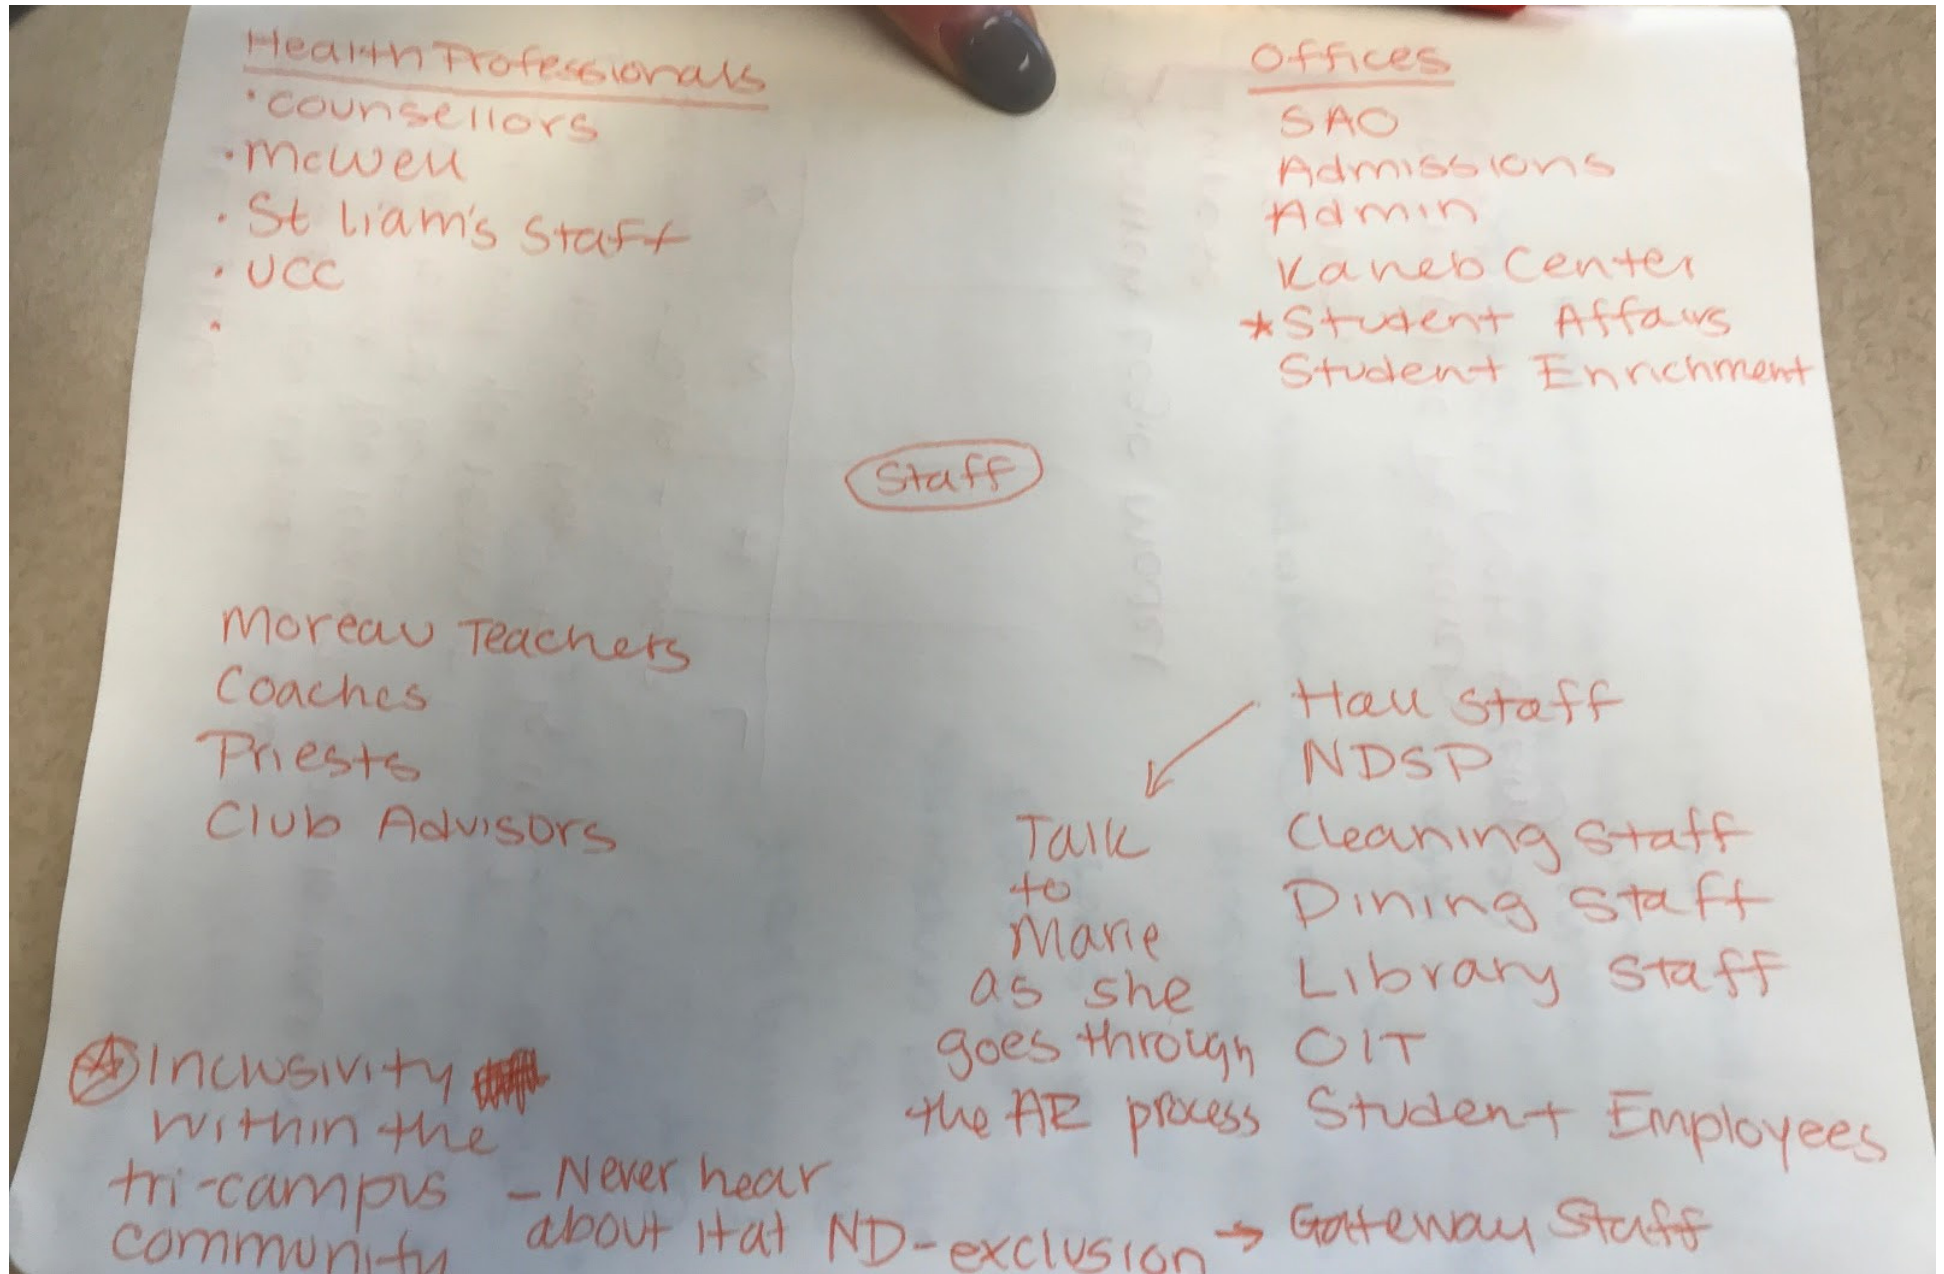 Health Professionals
· counsellors
· McWell
· St Liam's Staff
· UCC
·
Offices
SAO
Admissions
Admin
Kaneb Center
* Student Affairs
Student Enrichment
Staff
Moreau Teachers
Coaches
Priests
Club Advisors
Hall Staff
NDSP
Cleaning Staff
Dining Staff
Library Staff
OIT
Student Employees
Talk
to
Marie
as she
goes through
the AR process
Inclusivity
within the
tri-campus
community
- Never hear
about it at ND - exclusion → Gateway Staff